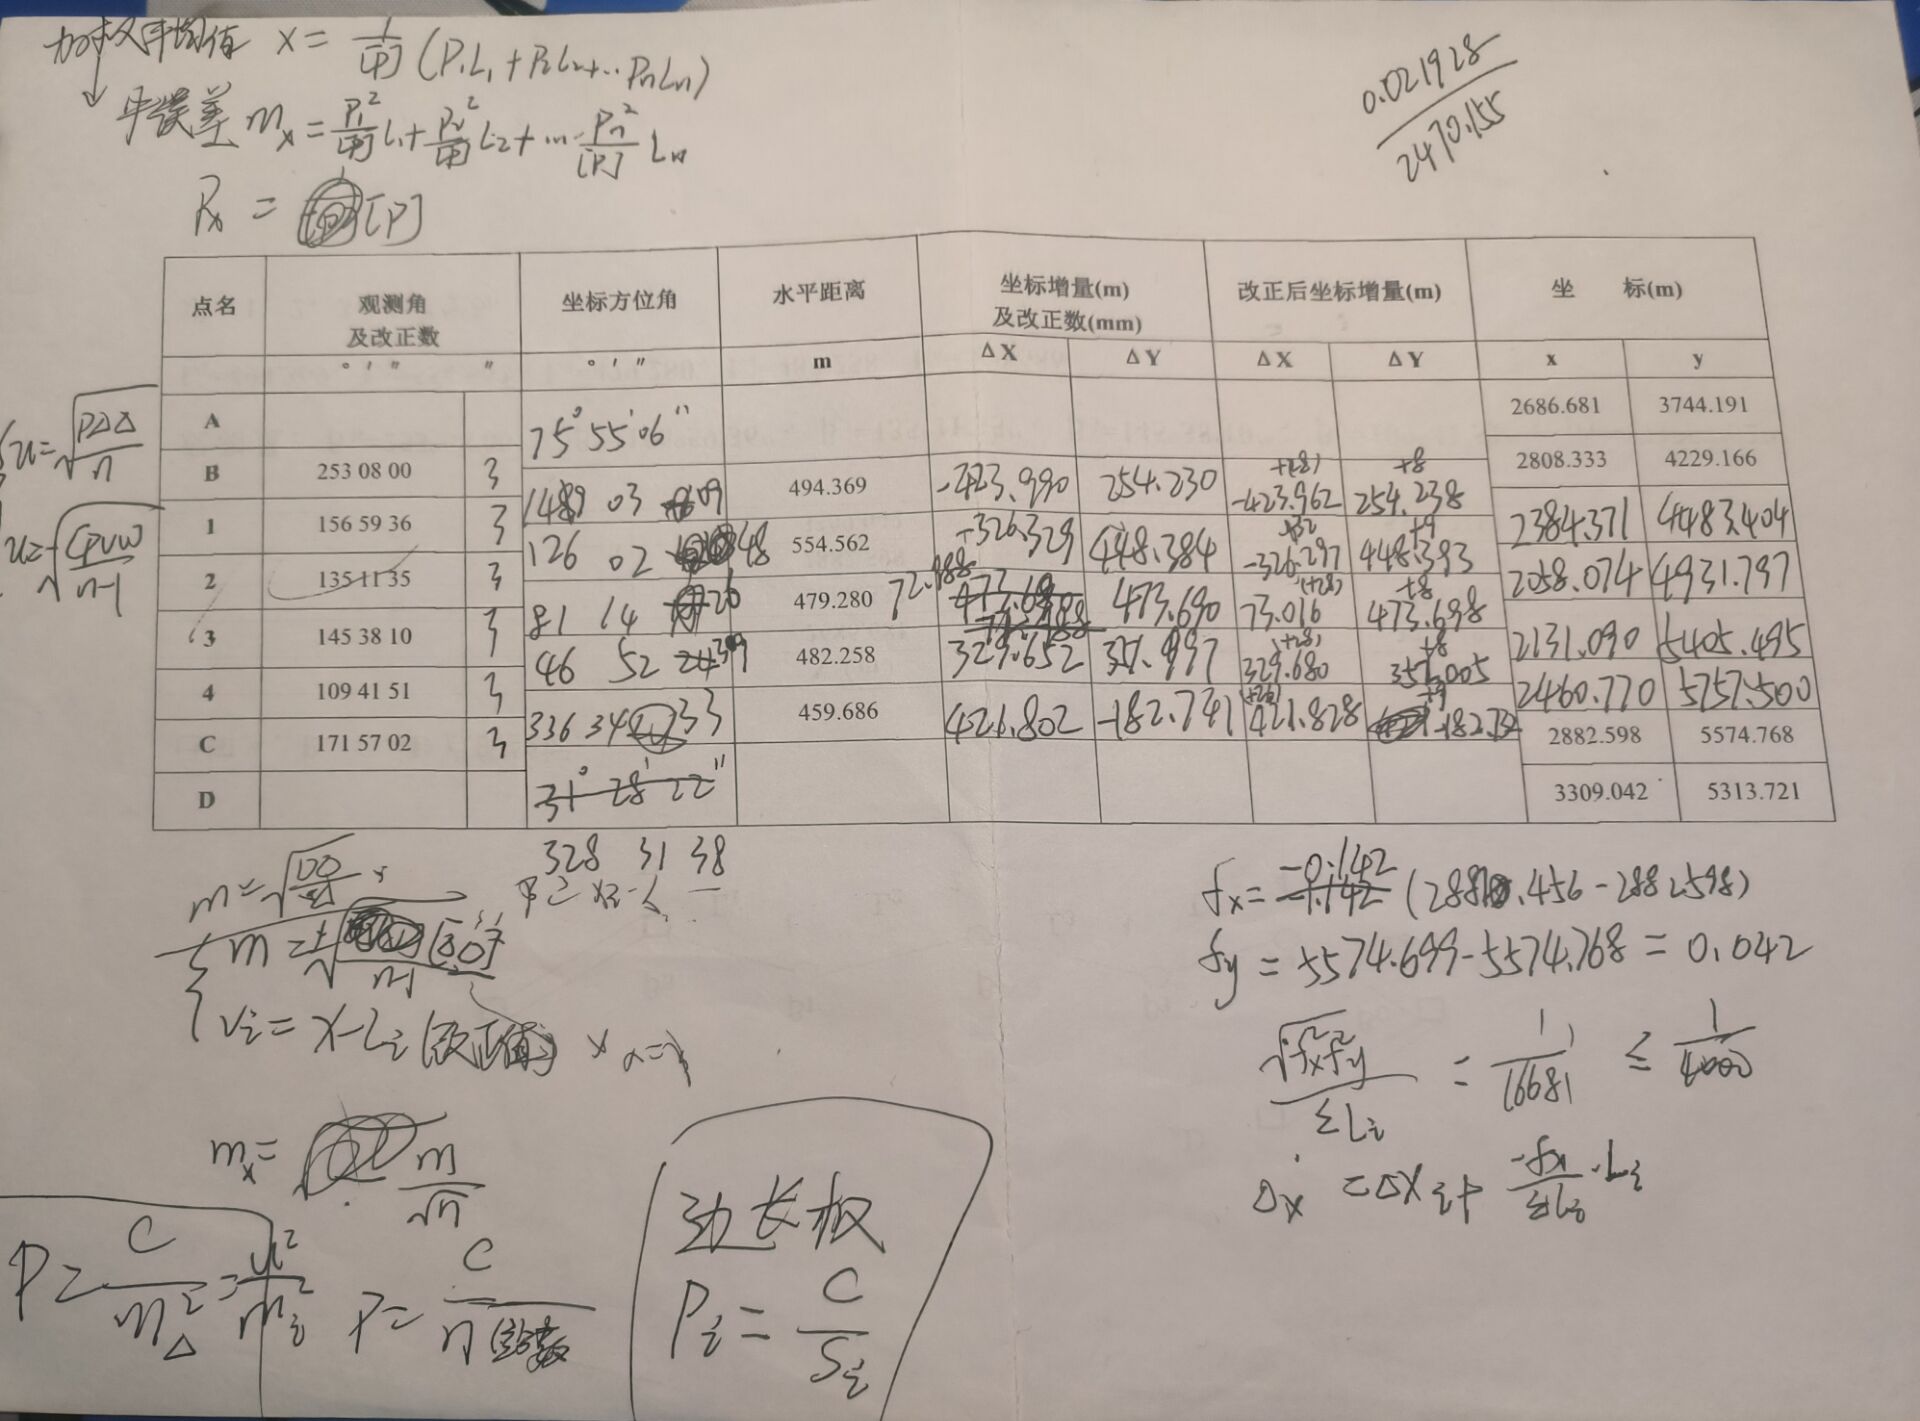 加权平均值 x = 1/[P] (P₁L₁ + P₂L₂ + ... PnLn)
中误差 mx = P₁²/[P] L₁ + P₂²/[P] L₂ + ... Pn²/[P] Ln
Px = [P]
0.021928
2470.155
点名 观测角及改正数 坐标方位角 水平距离 坐标增量(m)及改正数(mm) 改正后坐标增量(m) 坐 标(m)
° ′ ″ ″ ° ′ ″ m ΔX ΔY ΔX ΔY x y
A 75° 55′ 06″ 2686.681 3744.191
B 253 08 00 3 2808.333 4229.166
149 03 09 494.369 -423.990 254.230 +(28) -423.962 +8 254.238
1 156 59 36 3 2384.371 4483.404
126 02 48 554.562 -326.329 448.384 +32 -326.297 +9 448.393
2 135 11 35 3 2058.074 4931.797
81 14 26 479.280 72.988 473.690 (+28) 73.016 +8 473.698
3 145 38 10 3 2131.090 5405.495
46 52 39 482.258 329.652 351.997 +(28) 329.680 +8 352.005
4 109 41 51 3 2460.770 5757.500
336 34 33 459.686 421.802 -182.741 (+26) 421.828 +9 -182.732
C 171 57 02 3 2882.598 5574.768
31° 28′ 22″
D 3309.042 5313.721
328 31 38
u = √(PΔΔ/n)
u = √([PVV]/n-1)
vi = x - Li (改正值)
mx = m/√n
P = C/mΔ² = u²/mi²
P = C/n (站数)
边长权
Pi = C/Si
fx = -0.142 (2882.456 - 2882598)
fy = 5574.699 - 5574.768 = 0.042
√fx²fy²/ΣLi = 1/16681 ≤ 1/4000
Δx = ΔXi + -fx/ΣLi · Li